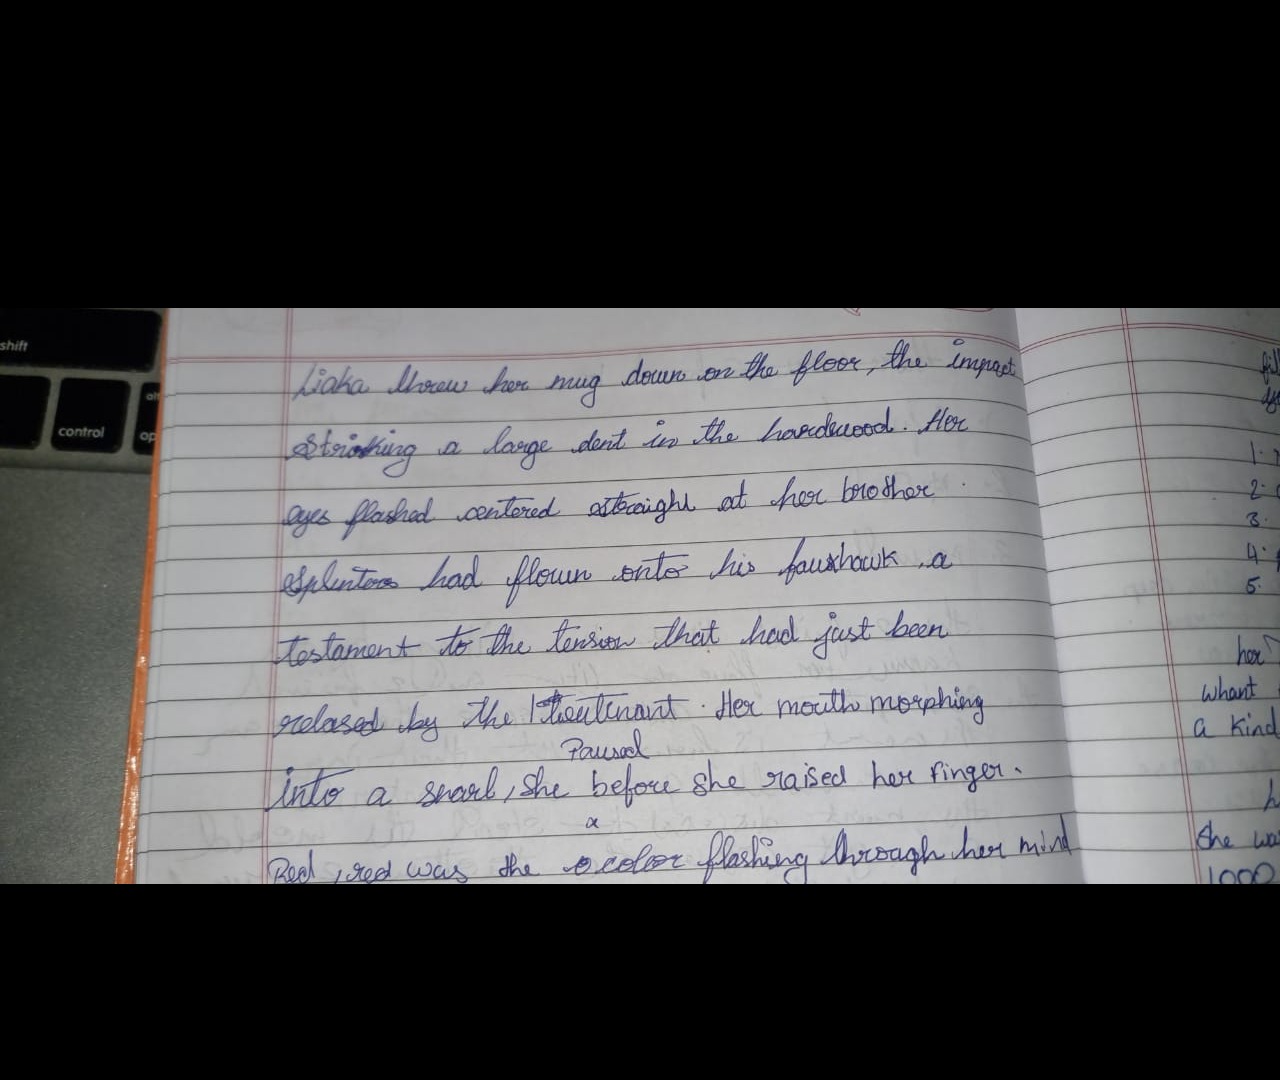 shift
control
Liaka threw her mug down on the floor, the impact
striking a large dent in the hardwood. Her
eyes flashed centered straight at her brother.
Splinters had flown onto his fauxhawk, a
testament to the tension that had just been
relased by the lieutinant. Her mouth morphing
Paused
into a snarl, she before she raised her finger.
Red, red was the color flashing through her mind
1.
2.
3.
4.
5.
her
whant
a kind
she wa
1000